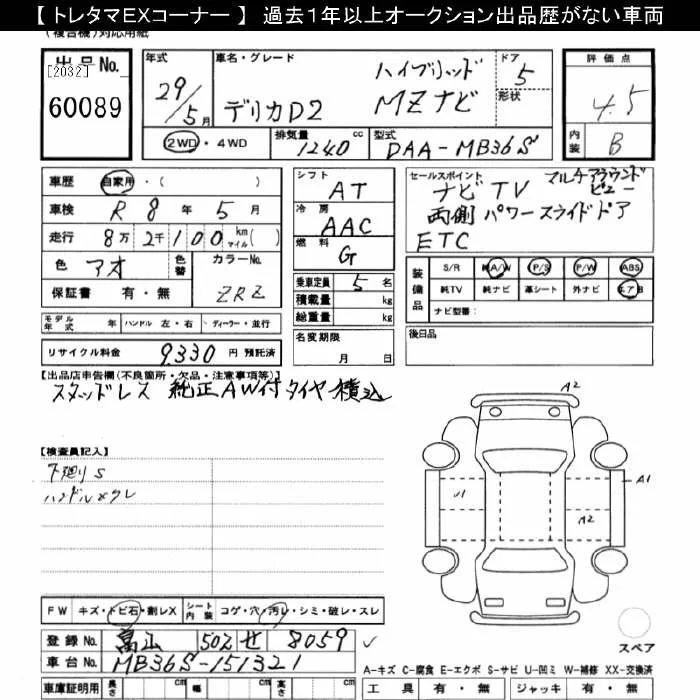 【 トレタマEXコーナー 】 過去1年以上オークション出品歴がない車両
(複合機)対応用紙
出品No.
[2032]
60089
年式
29/5月
車名・グレード
デリカD2 ハイブリッド MZナビ
ドア 5
形状
②WD・4WD
排気量 1240 cc
型式 DAA-MB36S
評価点
4.5
内装 B
車歴 自家用・( )
車検 R 8 年 5 月
走行 8万 2千100 km マイル( )
色 アオ 色替 カラーNo.
保証書 有・無 ZRZ
モデル年式 年 ハンドル 左・右 ディーラー・並行
リサイクル料金 9330 円 預託済
シフト AT
冷房 AAC
燃料 G
乗車定員 5 名
積載量 kg
総重量 kg
名変期限
月 日
セールスポイント マルチアラウンドビュー
ナビTV
両側パワースライドドア
ETC
装備品 S/R 純A/W P/S P/W ABS
純TV 純ナビ 革シート 外ナビ エアB
ナビ型番:
後日品
【出品店申告欄(不良箇所・欠品・注意事項等)】
スタッドレス 純正AW付タイヤ積込
【検査員記入】
下廻りS
ハンドルスレ
A2
A1
U1
A2
スペア
FW キズ・トビ石・割レX シート内装 コゲ・穴・汚レ・シミ・破レ・スレ
登録No. 富山 502 せ 8059
車台No. MB36S-151321
車庫証明用 長さ cm 幅 cm 高さ cm
A-キズ C-腐食 E-エクボ S-サビ U-凹ミ W-補修 XX-交換済
工具 有・無 ジャッキ 有・無